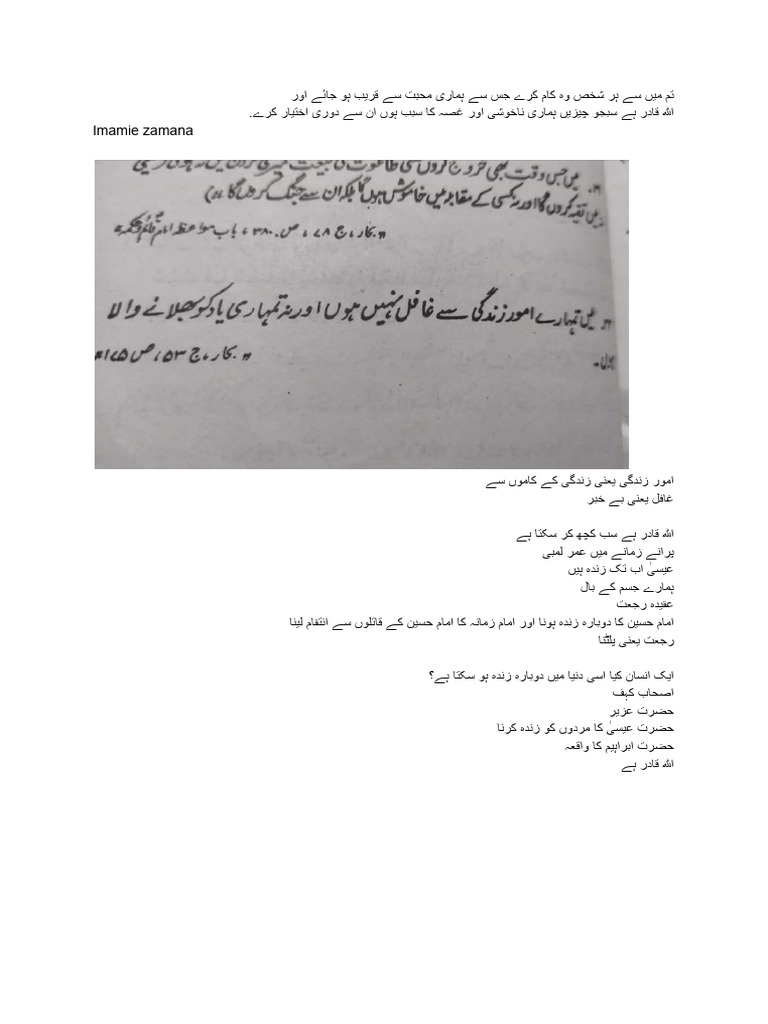 تم میں سے ہر شخص وہ کام کرے جس سے ہماری محبت سے قریب ہو جائے اور
اللہ قادر ہے سبجو چیزیں ہماری ناخوشی اور غصہ کا سبب ہوں ان سے دوری اختیار کرے.
Imamie zamana
میں جس وقت بھی خروج کروں گا طاغوت کی بیعت میری گردن میں نہ ہوگی
میں تقیہ کروں گا اور نہ کسی کے مقابلہ میں خاموش ہوں گا بلکہ ان سے جنگ کروں گا
بحار، ج ۷۸، ص ۳۸۰، باب مواعظ امام قائم
۳۔ میں تمہارے امور زندگی سے غافل نہیں ہوں اور نہ تمہاری یاد کو بھلانے والا
ہوں۔
بحار، ج ۵۳، ص ۱۷۵
امور زندگی یعنی زندگی کے کاموں سے
غافل یعنی بے خبر
اللہ قادر ہے سب کچھ کر سکتا ہے
پرانے زمانے میں عمر لمبی
عیسیٰ اب تک زندہ ہیں
ہمارے جسم کے بال
عقیدہ رجعت
امام حسین کا دوبارہ زندہ ہونا اور امام زمانہ کا امام حسین کے قاتلوں سے انتقام لینا
رجعت یعنی پلٹنا
ایک انسان کیا اسی دنیا میں دوبارہ زندہ ہو سکتا ہے؟
اصحاب کہف
حضرت عزیر
حضرت عیسیٰ کا مردوں کو زندہ کرنا
حضرت ابراہیم کا واقعہ
اللہ قادر ہے